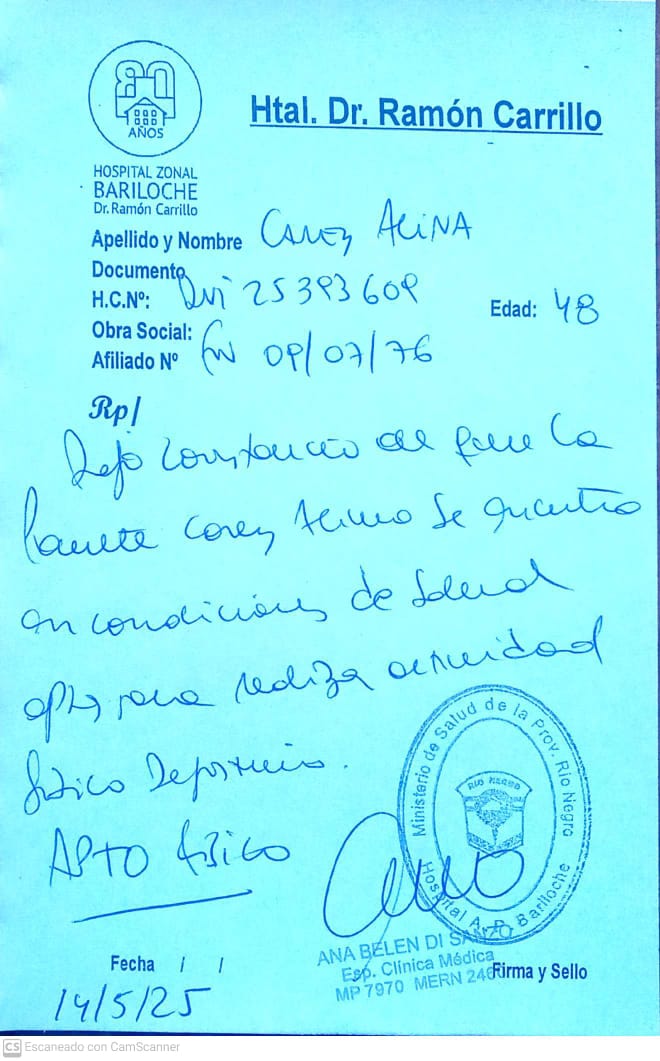 80
AÑOS
HOSPITAL ZONAL
BARILOCHE
Dr. Ramón Carrillo
Htal. Dr. Ramón Carrillo
Apellido y Nombre Carey Alina
Documento
H.C.Nº: DNI 25393609
Edad: 48
Obra Social:
Afiliado Nº FN 09/07/76
Rp/
Dejo constancia de que la
paciente Carey Alina se encuentra
en condiciones de salud
apta para realiza actividad
física Deportiva.
APTO físico
Ministerio de Salud de la Prov. Río Negro
RIO NEGRO
Hospital A. P. Bariloche
ANA BELEN DI SANZO
Esp. Clínica Médica
MP 7970 MERN
Firma y Sello
Fecha / /
14/5/25
CS Escaneado con CamScanner